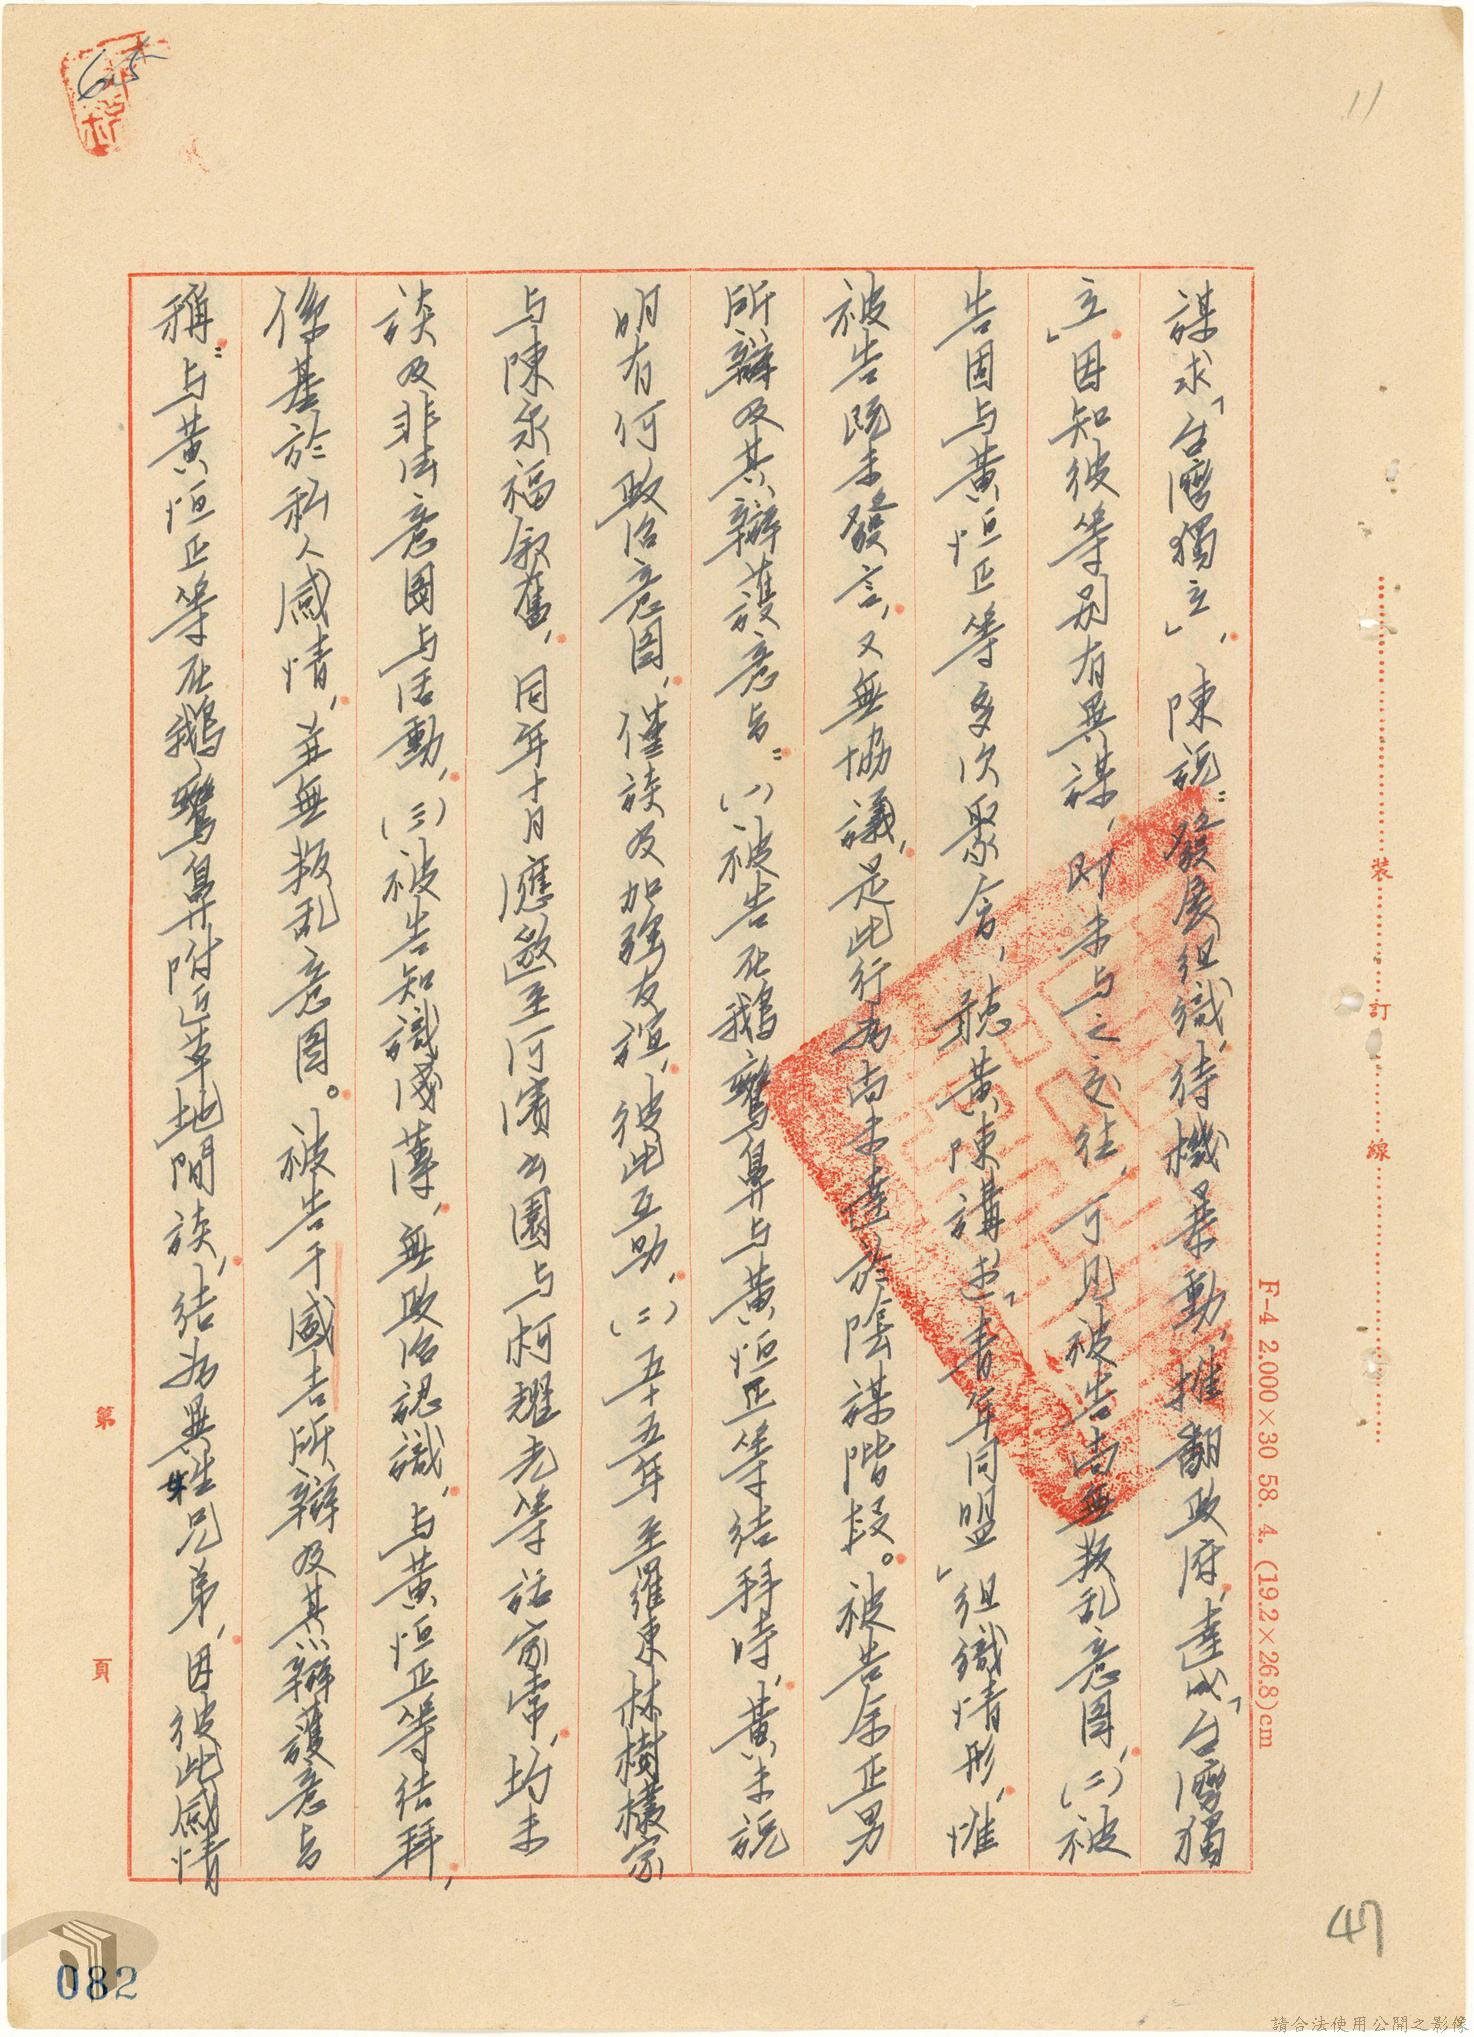 11
謀求「台灣獨立」，陳説：發展組織，待機暴動，推翻政府，達成「台灣獨
立」。因知彼等別有異謀，即未与之交往，可見被告尚無叛乱意圖，(二)被
告固与黃恒正等多次聚會，聽黃陳講述「青年同盟」組織情形，惟
被告既未發言，又無協議，是此行為尚未達於陰謀階段。被告余正男
所辯及其辯護意旨：(一)被告在鵝鑾鼻与黃恒正等結拜時，黃未説
明有何政治意圖，僅談及加强友誼，彼此互助，(二)五十五年至羅東林樹欉家
与陳永福叙舊，同年十月應邀至河濱公園与柯耀光等話家常，均未
談及非法意圖与活動，(三)被告知識淺薄，無政治認識，与黃恒正等結拜，
係基於私人感情，並無叛乱意圖。被告于國吉所辯及其辯護意旨
稱：与黃恒正等在鵝鑾鼻附近草地間談，結為異姓兄弟，因彼此感情
裝 訂 線
F-4 2.000×30 58. 4. (19.2×26.8)cm
第 頁
47
082
請合法使用公開之影像